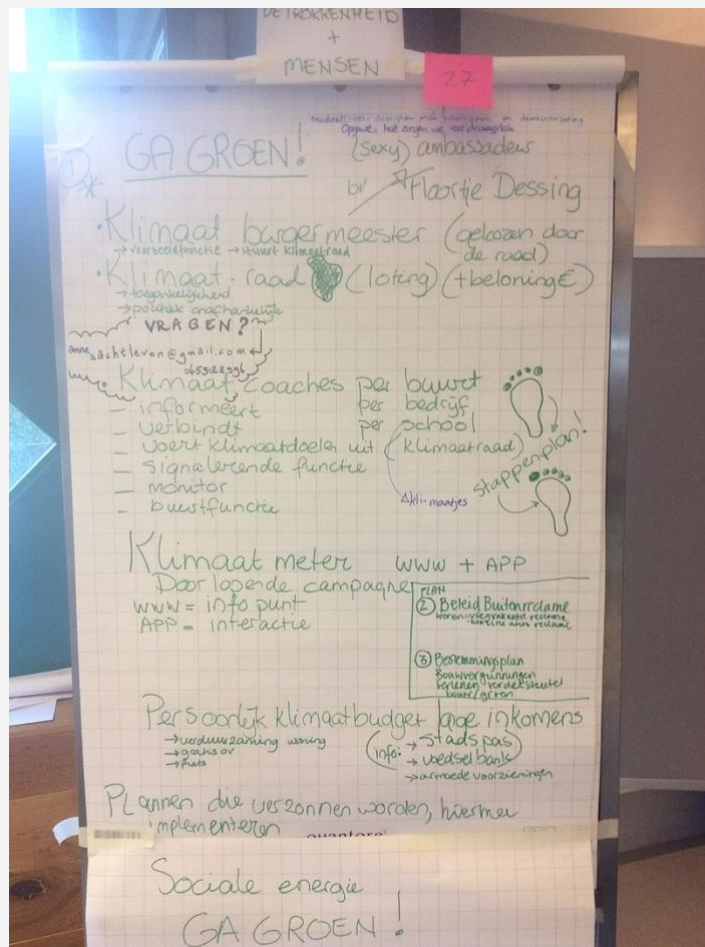 BETROKKENHEID
+
MENSEN
27
Opgave: hoe zorgen we voor draagvlak
GA GROEN!
(sexy) ambassadeur
1
bv Floortje Dessing
• Klimaat burgermeester (gekozen door de raad)
→ voorbeeldfunctie → stuurt klimaatraad
• Klimaat-raad (loting) (+beloning €)
→ toegankelijkheid
→ politiek onafhankelijk
VRAGEN?
anne sachtleven@gmail.com
• Klimaat coaches per buurt
- informeert per bedrijf
- verbindt per school
- voert klimaatdoelen uit (klimaatraad)
- signalerende functie
- monitor
- buurtfunctie
klimaatjes
stappenplan!
Klimaat meter www + APP
Doorlopende campagne
www = info punt
APP = interactie
PLAN
2 Beleid Buitenreclame
3 Bestemmingsplan
Bouwvergunningen
verlenen verdeelsleutel
bouw/groen
Persoonlijk klimaatbudget lage inkomens
→ verduurzaming woning
→ fiets
(info: → stadspas
→ voedselbank
→ armoede voorzieningen
Plannen die verzonnen worden, hiermee
implementeren
Sociale energie
GA GROEN!